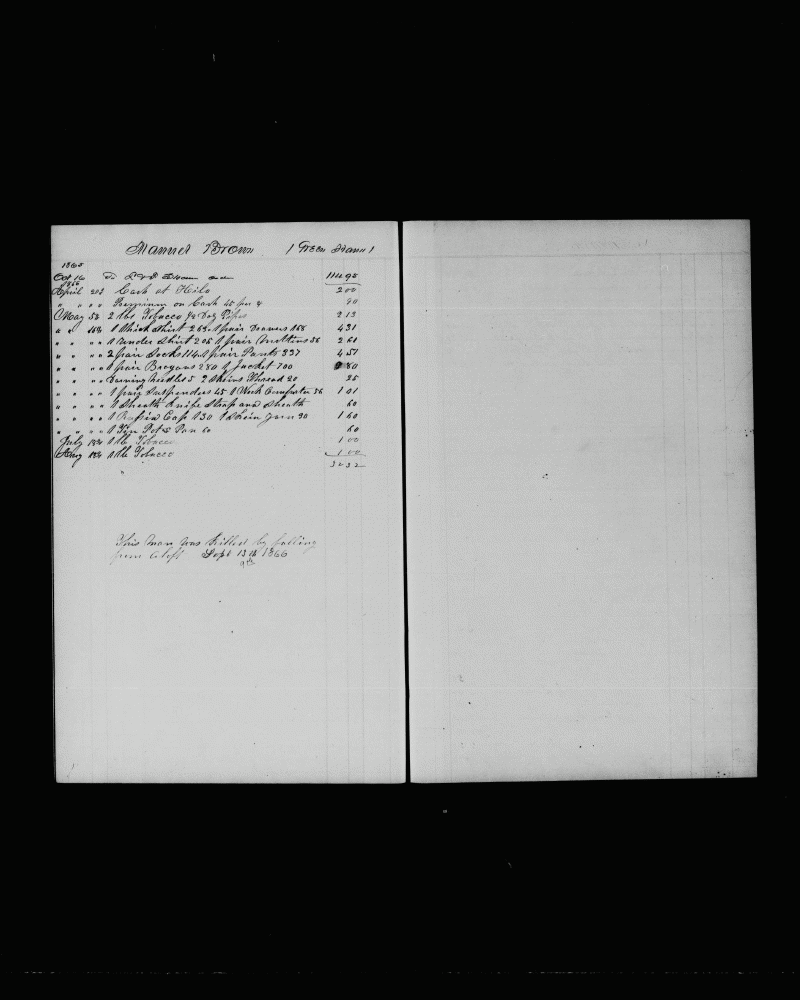 Manuel Brown ( Green Hand )
1865
Oct 16 To 114 95
1866
April 20 Cash at Hilo 2 00
" " " " Premium on Cash 45 per % 90
May 5th 2 lbs Tobacco Pipes 2 13
" " 16th 1 thick shirt 263 1 pair Drawers 168 4 31
" " " " 1 under shirt 205 1 pair Mittens 56 2 61
" " " " 2 pair Socks 114 1 pair Pants 337 4 51
" " " " 1 pair Brogans 280 1 Jacket 700 9 80
" " " " Darning needles 5 2 skeins Thread 20 25
" " " " 1 pair Suspenders 45 1 Neck Comforter 56 1 01
" " " " 1 Sheath Knife Strap and Sheath 60
" " " " 1 Russia Cap 130 1 Skein yarn 30 1 60
" " " " 1 Tin Pot & Pan 60 60
July 18th 1 lb Tobacco 1 00
Aug 18th 1 lb Tobacco 1 00
30 32
This man was killed by falling
from aloft Sept 13th 1866
9th